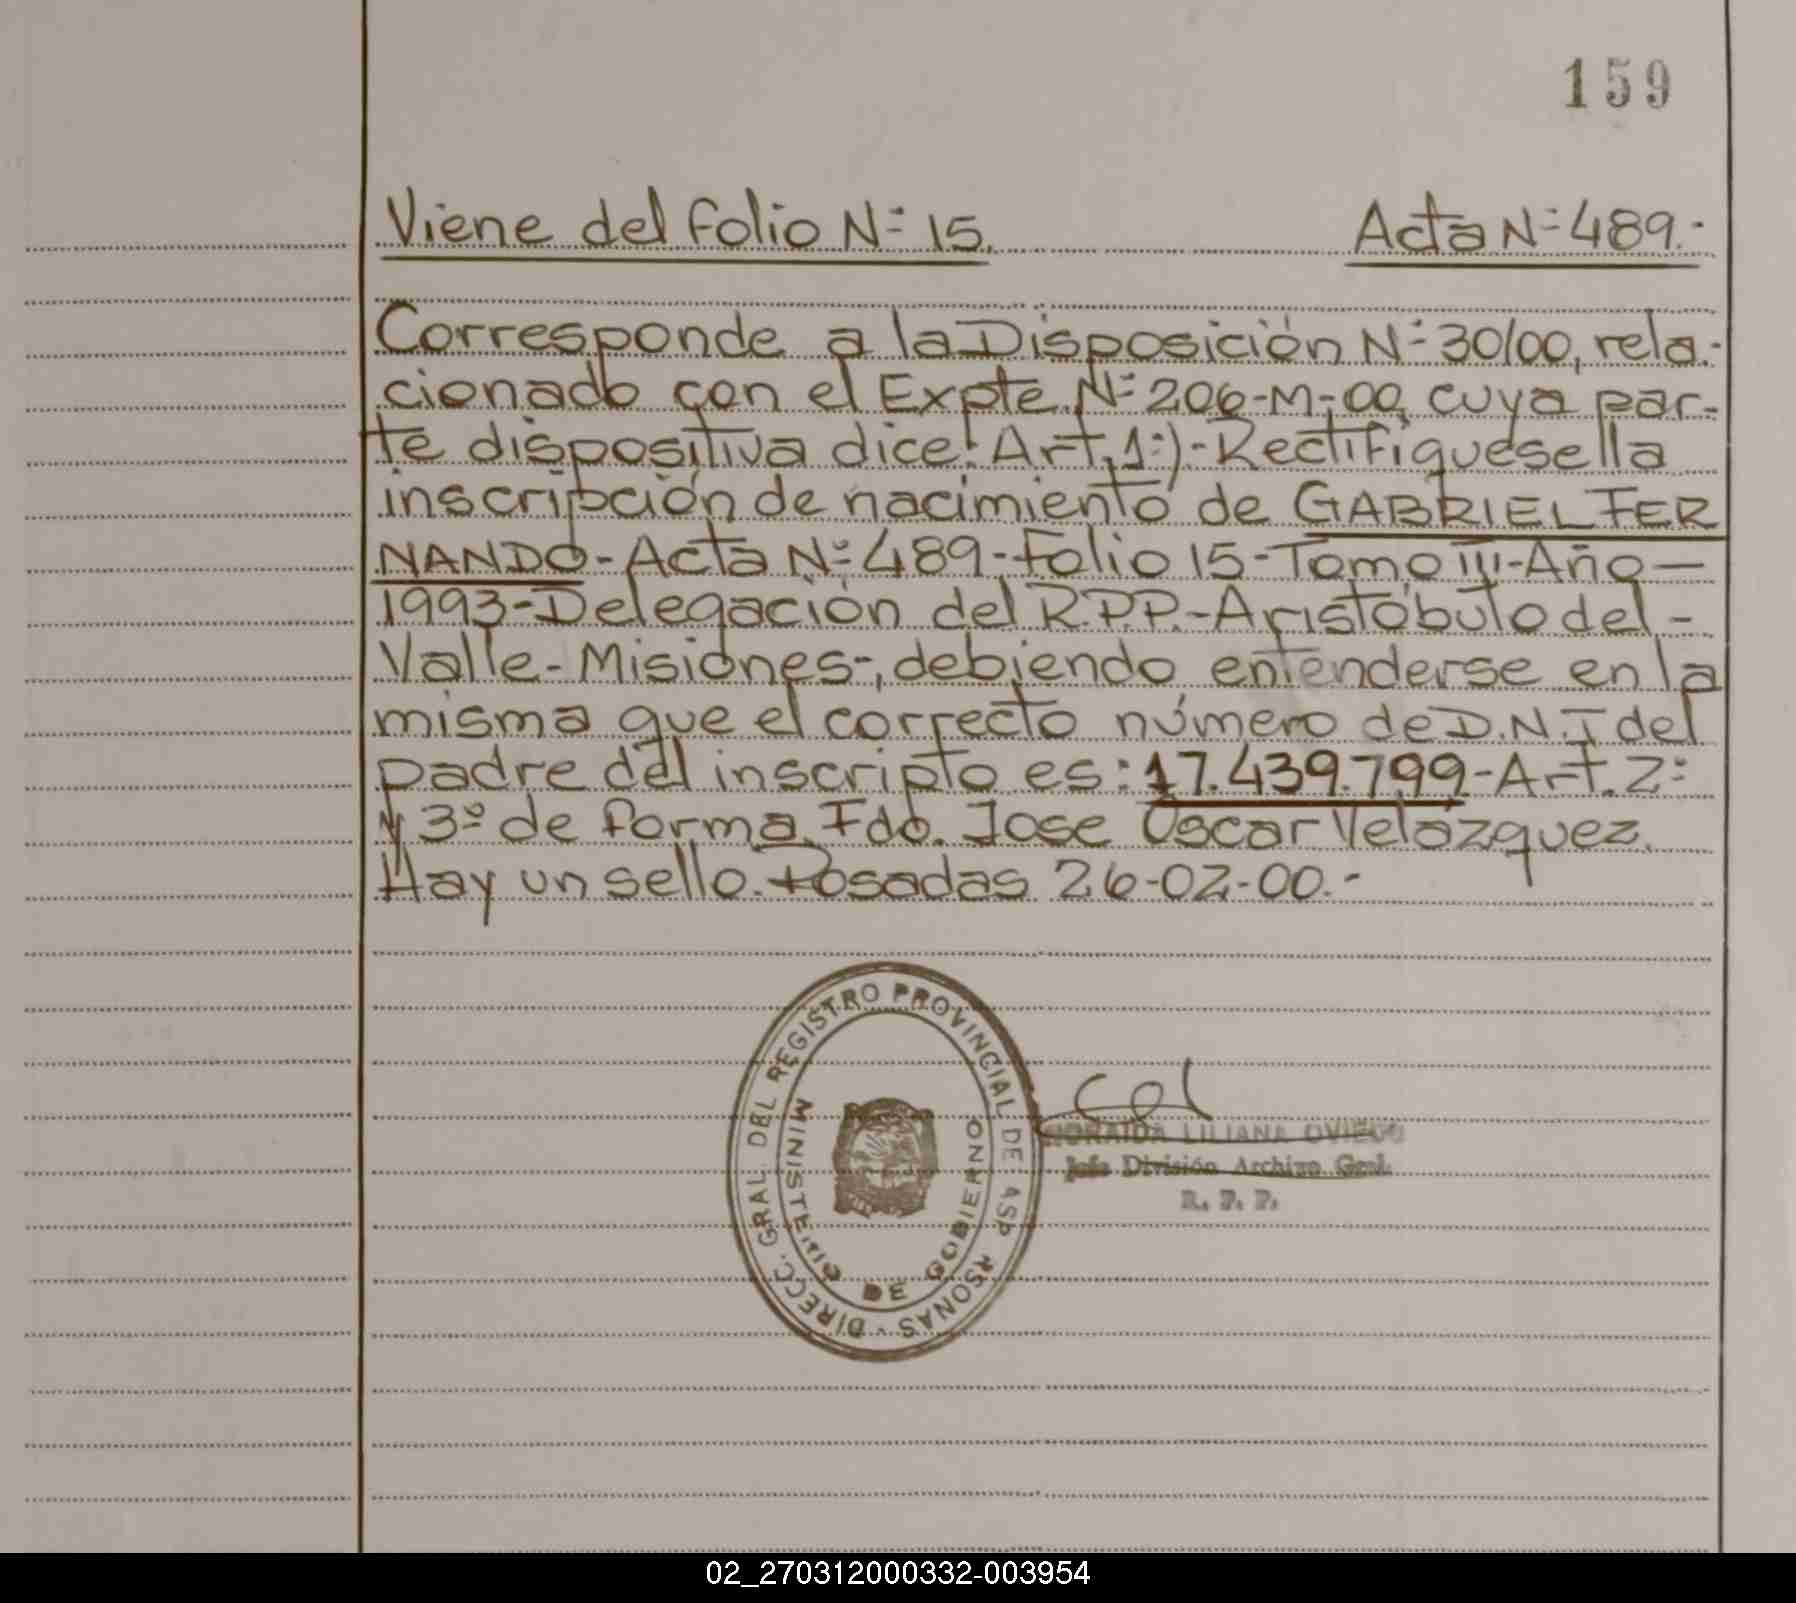 159
Viene del folio Nº 15.
Acta Nº 489.-
Corresponde a la Disposición Nº 30/00, rela.-
cionado con el Expte. Nº 206-M-00, cuya par-
te dispositiva dice: Art. 1º).- Rectifíquese la
inscripción de nacimiento de GABRIEL FER
NANDO - Acta Nº 489 - Folio 15 - Tomo III - Año —
1993 - Delegación del R.P.P.- Aristóbulo del -
Valle - Misiones -, debiendo entenderse en la
misma que el correcto número de D.N.I del
padre del inscripto es: 17.439.799 - Art. 2º
y 3º de forma. Fdo. Jose Oscar Velázquez.
Hay un sello. Posadas 26-02-00.-
DIRECC. GRAL. DEL REGISTRO PROVINCIAL DE ASP RSONAS -
MINISTERIO DE GOBIERNO
LILIANA OVIEDO
Jefe División Archivo Gral.
R. P. P.
02_270312000332-003954